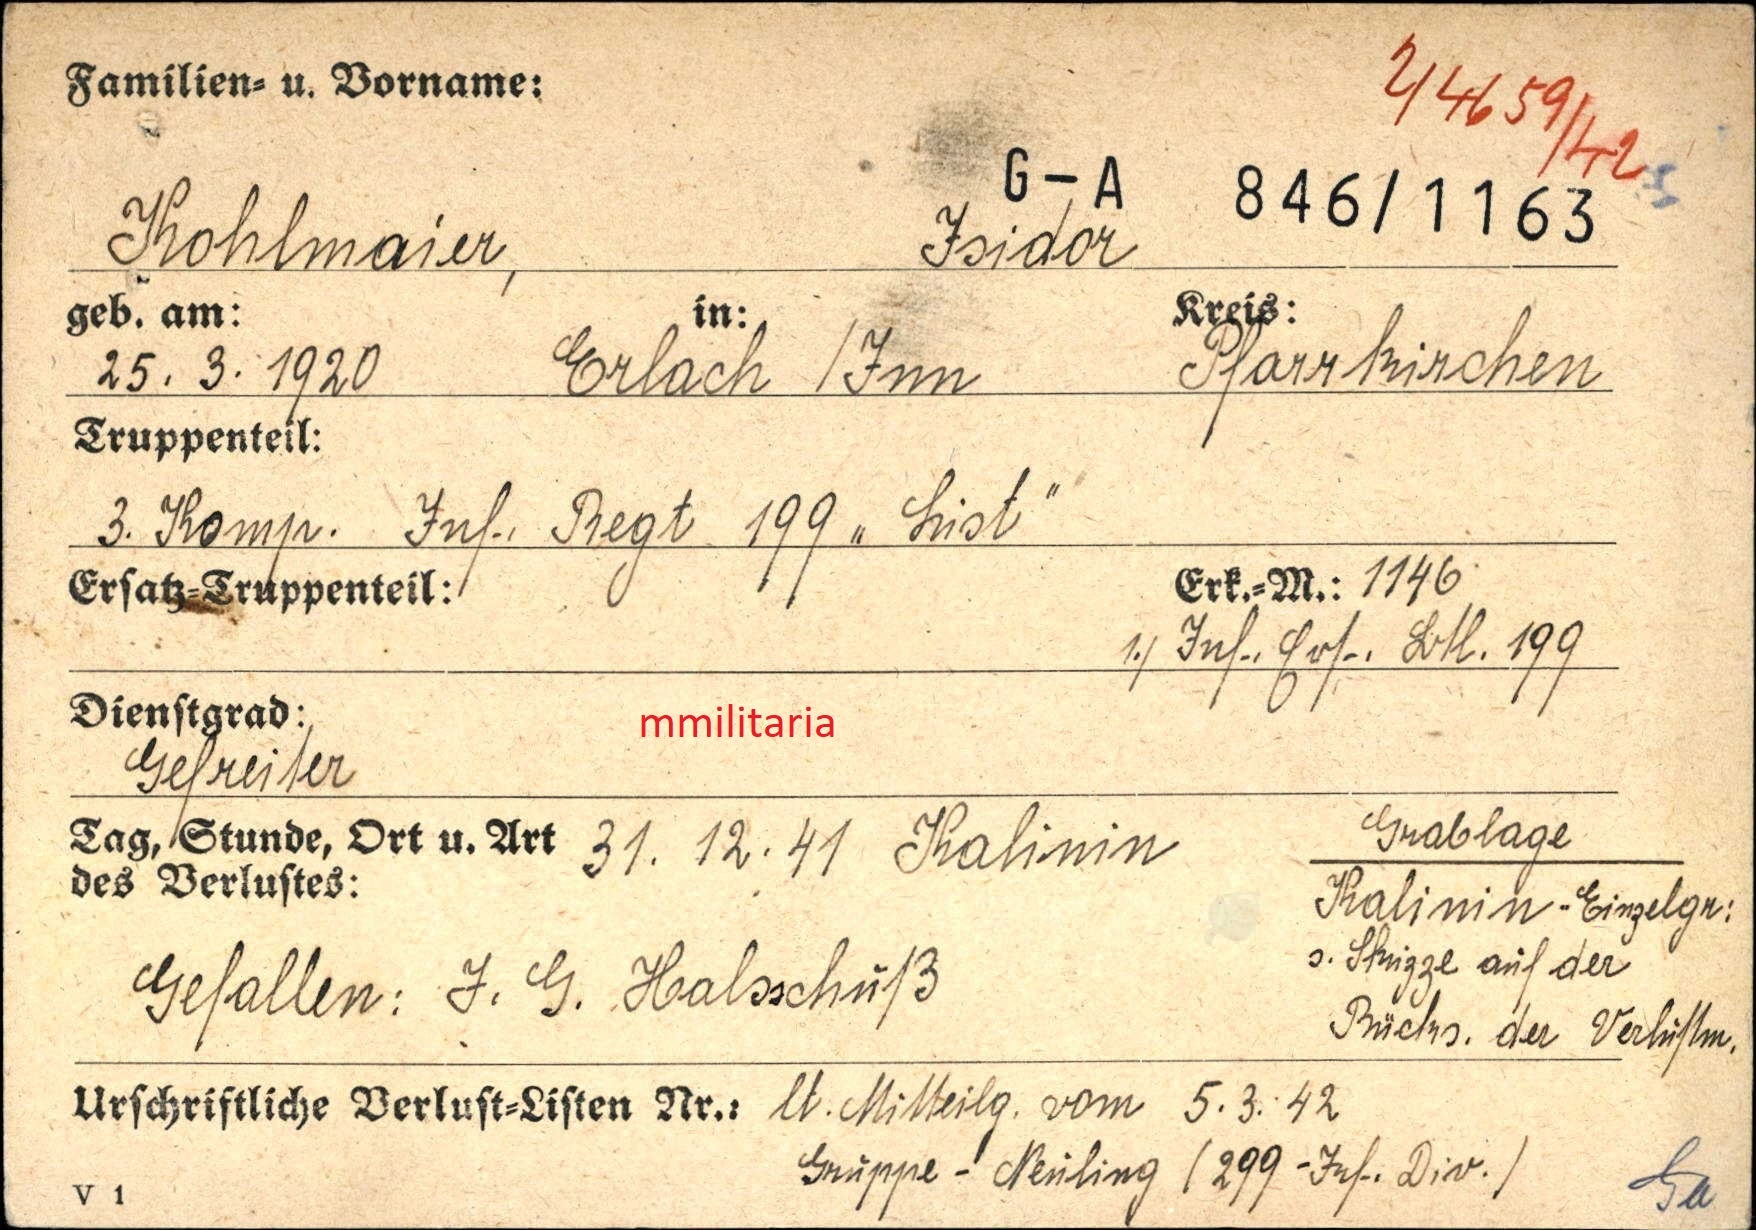 Familien- u. Vorname:
2/4659/42
G-A 846/1163
Kohlmaier, Isidor
geb. am: in: Kreis:
25. 3. 1920 Erlach /Inn Pfarrkirchen
Truppenteil:
3. Komp. Inf. Regt 199 „List"
Ersatz-Truppenteil: Erk.-M.: 1146
1./ Inf. Ers. Btl. 199
Dienstgrad:
mmilitaria
Gefreiter
Tag, Stunde, Ort u. Art 31. 12. 41 Kalinin
des Verlustes:
Grablage
Kalinin - Einzelgr:
s. Skizze auf der
Rücks. der Verlustm.
Gefallen: I. G. Halsschuß
Urschriftliche Verlust-Listen Nr.: lt. Mitteilg. vom 5. 3. 42
Gruppe - Neuling (299 - Inf. Div.)
V 1